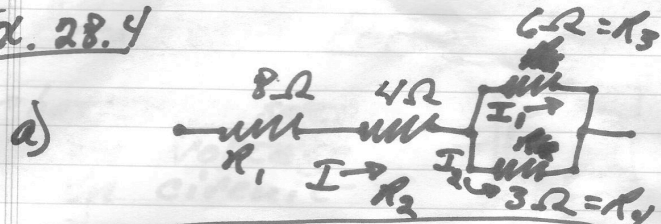 Ex. 28.4
6Ω = R₃
8Ω 4Ω
a)
I₁ →
R₁ I → R₂
I₂ → 3Ω = R₄